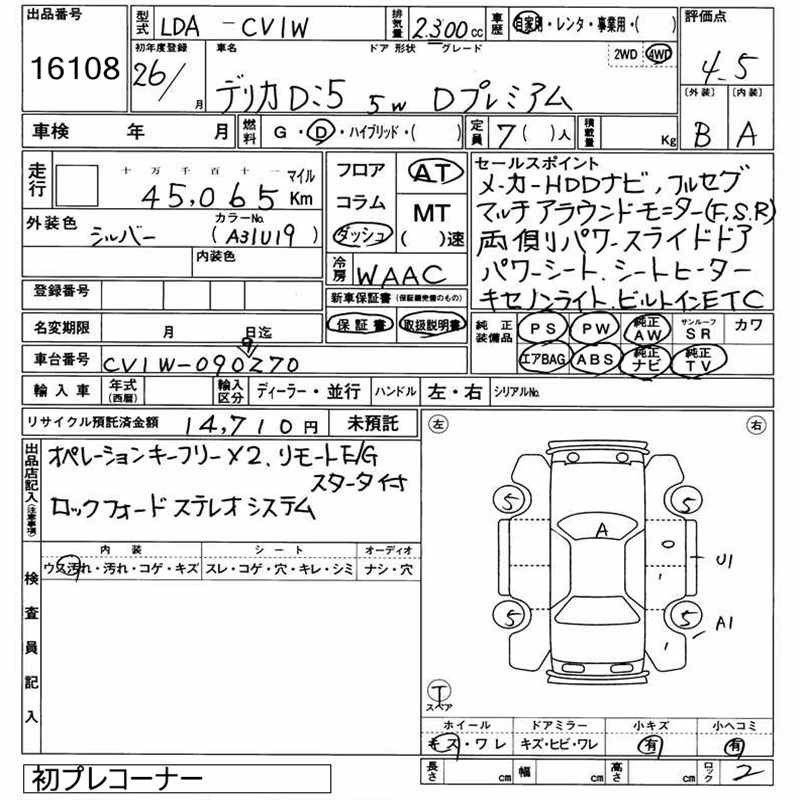 出品番号
16108
型式 LDA - CV1W
排気量 2300 cc
車歴 自家用・レンタ・事業用・( )
評価点
4.5
初年度登録 車名 ドア 形状 グレード
26/ 月
デリカD:5 5W Dプレミアム
2WD 4WD
〔外装〕〔内装〕
B A
車検 年 月
燃料 G・D・ハイブリッド・( )
定員 7( )人
積載量 Kg
走行
十万千百十一 マイル
45,065 Km
外装色 カラーNo.
シルバー (A31U19)
内装色
登録番号
名変期限 月 日迄
9
車台番号 CV1W-090270
フロア
コラム
ダッシュ
AT
MT
( )速
冷房 WAAC
新車保証書(保証継発書のもの)
保証書 取扱説明書
セールスポイント
メーカーHDDナビ,フルセグ
マルチアラウンドモニター(F,S,R)
両側りパワースライドドア
パワーシート.シートヒーター
キセノンライト.ビルトインETC
純正装備品
PS PW 純正AW サンルーフSR カワ
エアBAG ABS 純正ナビ 純正TV
輸入車 年式(西暦) 輸入区分 ディーラー・並行 ハンドル 左・右 シリアルNo.
リサイクル預託済金額 14,710円 未預託
出品店記入(注意事項)
オペレーションキーフリー×2.リモートE/G
スタータ付
ロックフォードステレオシステム
内装 シート オーディオ
ウス汚れ・汚れ・コゲ・キズ スレ・コゲ・穴・キレ・シミ ナシ・穴
検査員記入
左 右
5 5
A
U1
5 5
A1
T
スペア
ホイール ドアミラー 小キズ 小ヘコミ
キズ・ワレ キズ・ヒビ・ワレ 有 有
長さ cm 幅 cm 高さ cm ロック 2
初プレコーナー